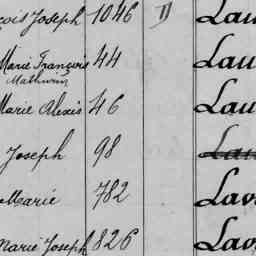 çois Joseph 1046 D Lau
Marie François 44 Lau
Mathurin
Marie Alexis 46 Lau
Joseph 98 Lau
Marie 782 Lav
Marie Joseph 826 Lav